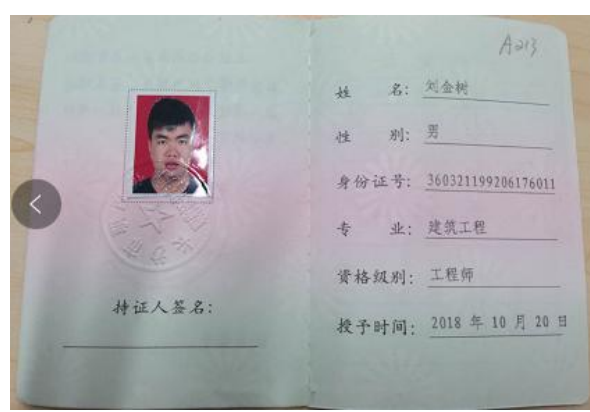 A213
姓 名：刘金树
性 别：男
身份证号：360321199206176011
专 业：建筑工程
资格级别：工程师
授予时间：2018 年 10 月 20 日
持证人签名：